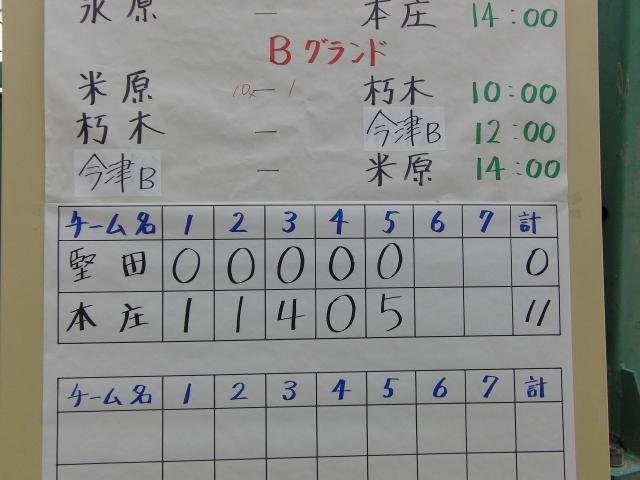 永原 — 本庄 14:00
Bグランド
米原 10x — 1 朽木 10:00
朽木 — 今津B 12:00
今津B — 米原 14:00
チーム名 1 2 3 4 5 6 7 計
堅田 0 0 0 0 0 0
本庄 1 1 4 0 5 11
チーム名 1 2 3 4 5 6 7 計